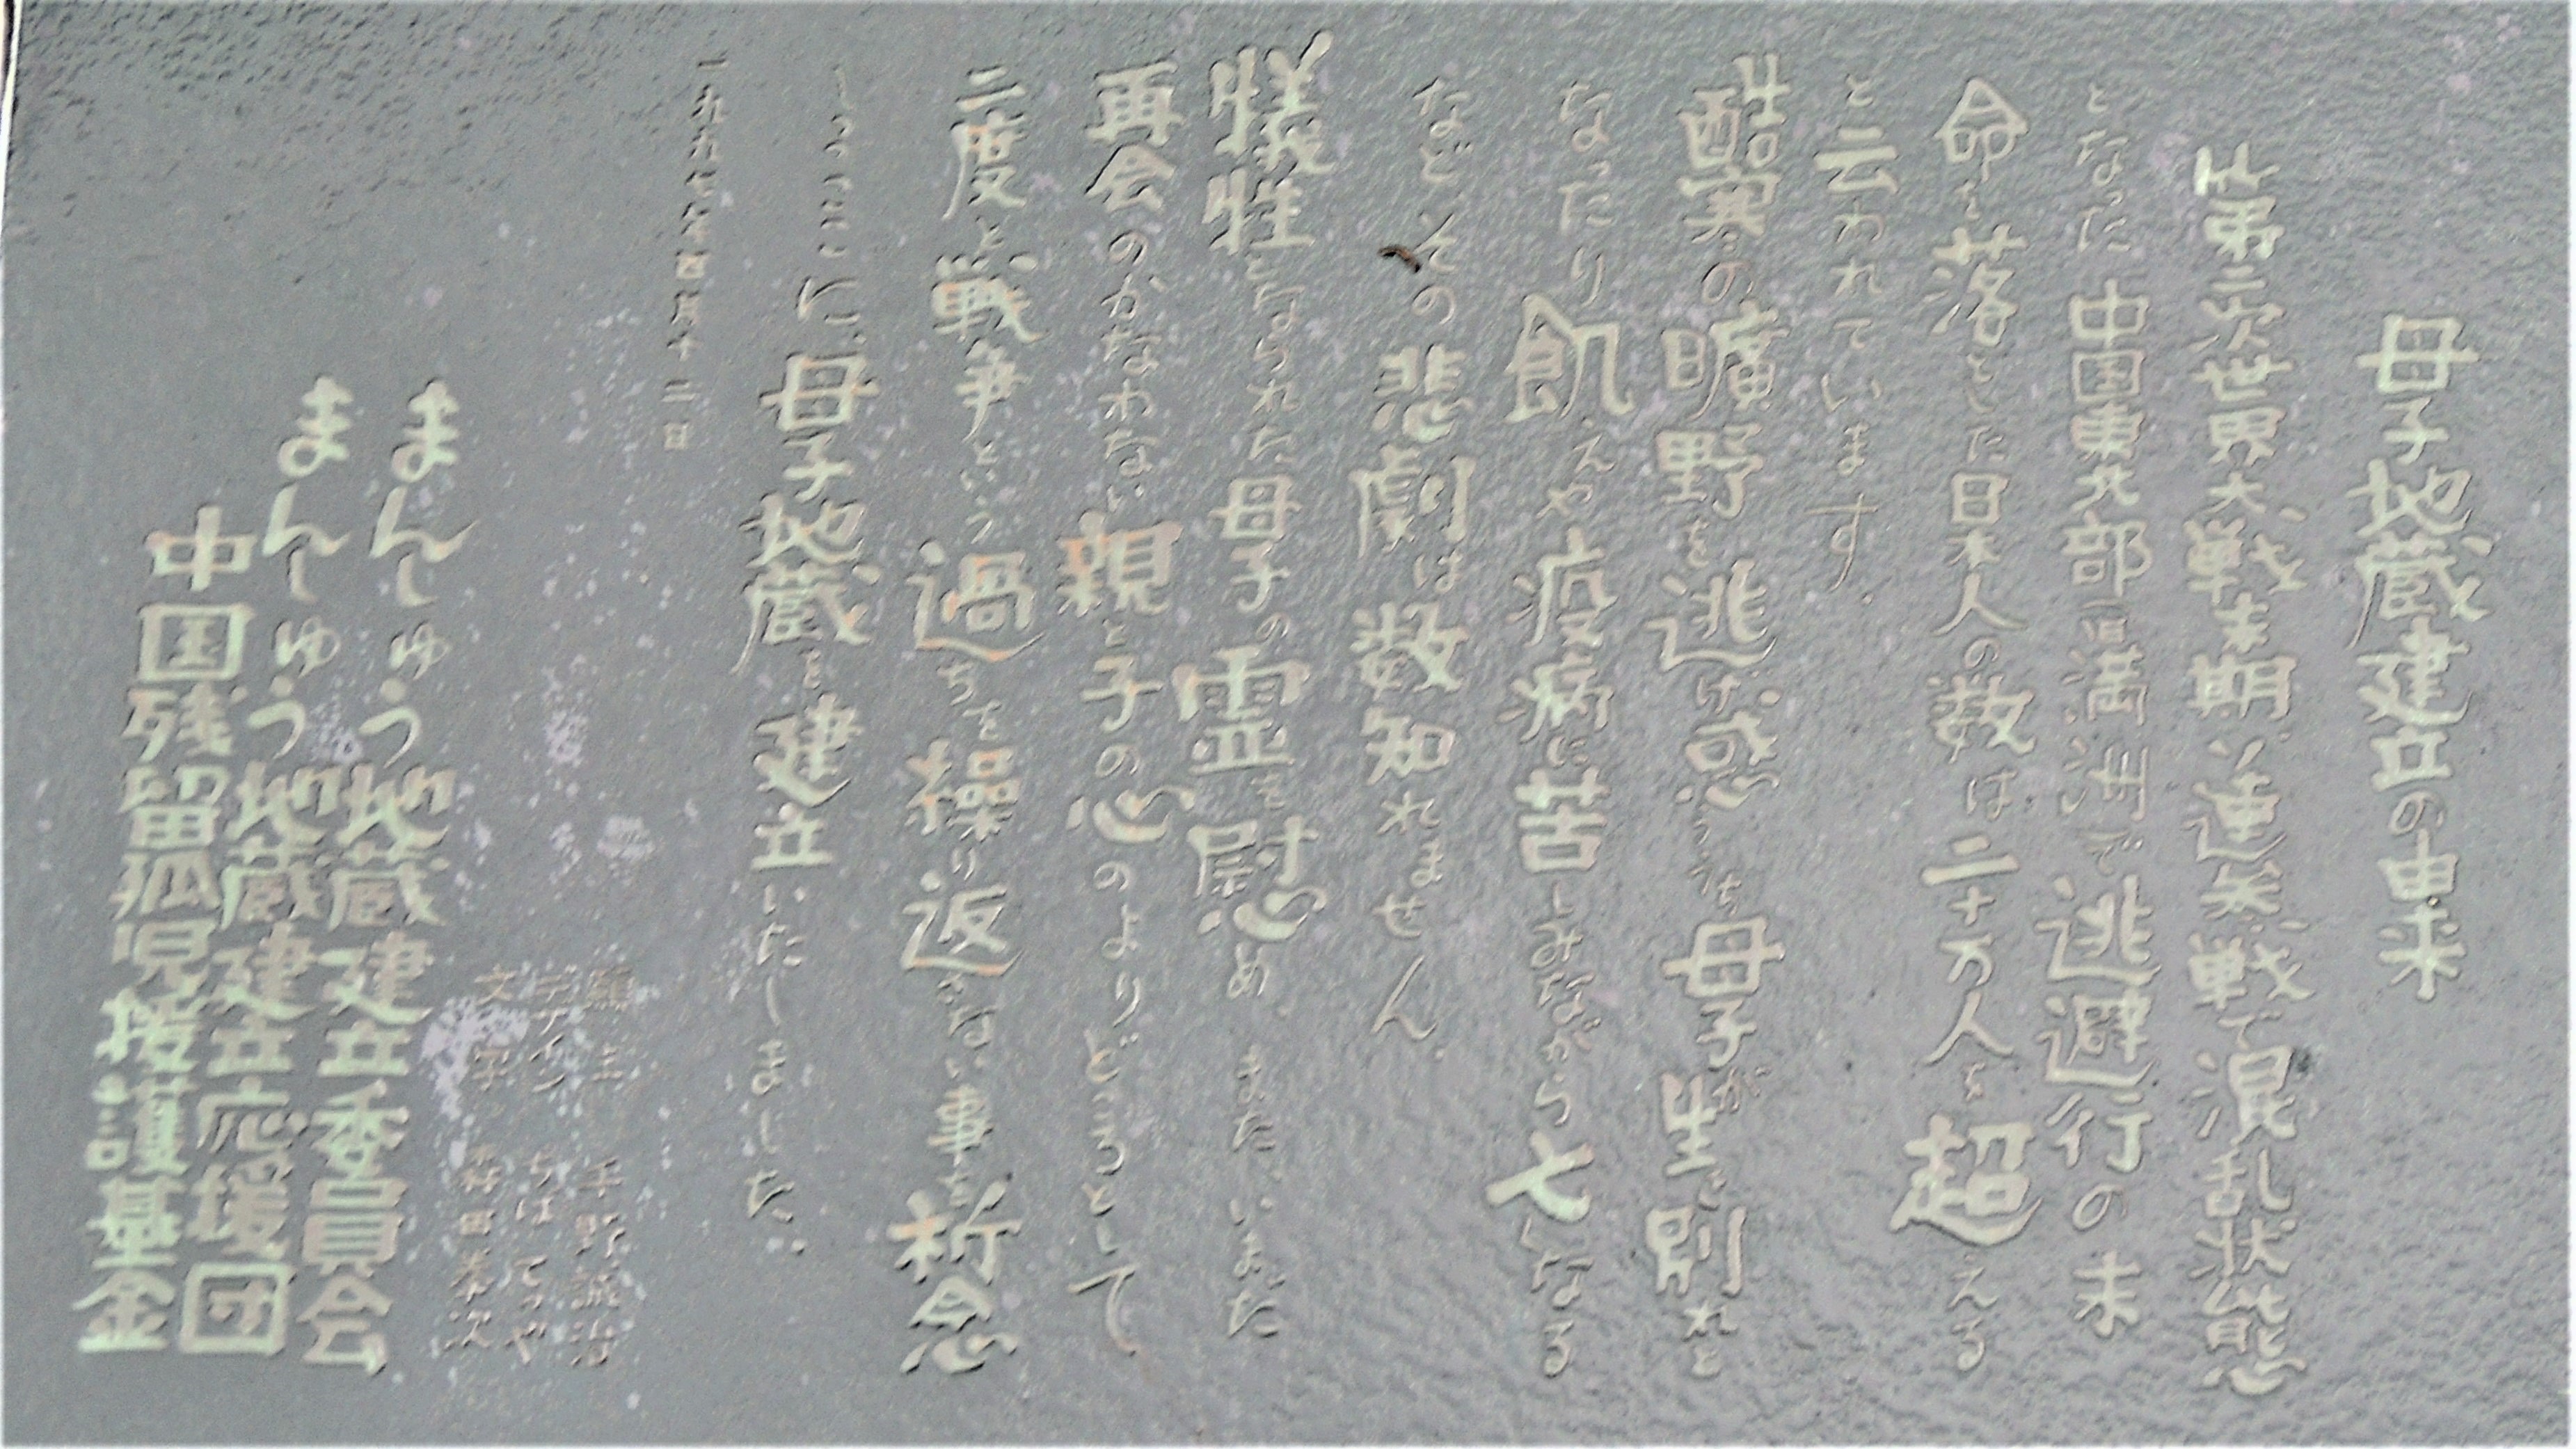 母子地蔵建立の由来
第二次世界大戦末期、連系戦で混し活状態
となった中国東北部(旧満洲)で逃避行の末
命を落とした日本人の数は二十万人を超える
と云われています。
酷寒の曠野を逃げ惑ううち母子が生き別れと
なったり飢えや疫病に苦しみながら亡くなる
などその悲劇は数知れません。
犠牲となられた母子の霊を慰め、まだ、いまだ
再会のかなわない親と子の心のよりどころとして
二度と戦争という過ちを操り返さない事を祈念
しつつここに母子地蔵を建立いたしました。
一九九七年四月十二日
題字
デザイン ちばてつや
文字 森田拳次
まんしゅう地蔵建立委員会
まんしゅう地蔵建立応援団
中国残留孤児援護基金